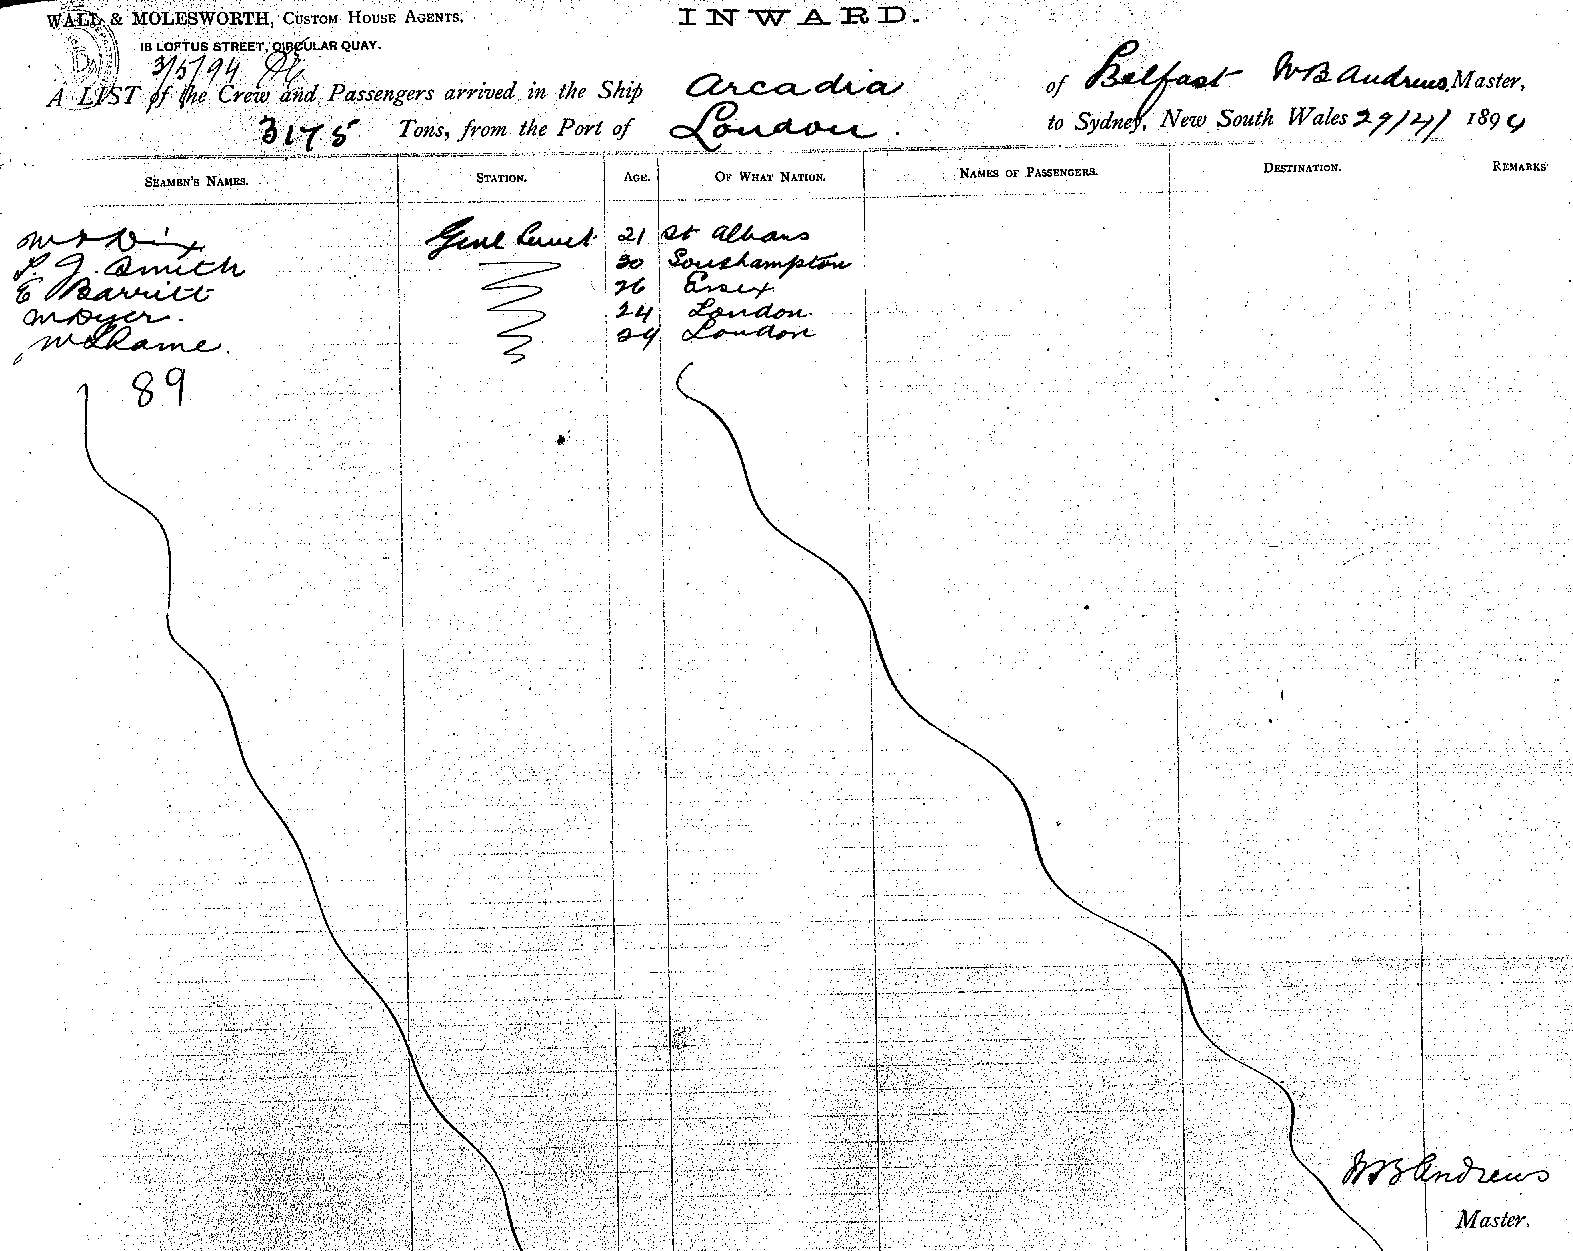 WALL & MOLESWORTH, CUSTOM HOUSE AGENTS.
INWARD.
18 LOFTUS STREET, CIRCULAR QUAY.
3/5/94
A LIST of the Crew and Passengers arrived in the Ship Arcadia of Belfast WB Andrews, Master,
3175 Tons, from the Port of London. to Sydney, New South Wales 29/4/ 1894
SEAMEN'S NAMES. STATION. AGE. OF WHAT NATION. NAMES OF PASSENGERS. DESTINATION. REMARKS
Dix Genl 21 St Albans
Smith 30 Southampton
E Barritt 26 Essex
W Dyer. 24 London
24 London
89
WB Andrews
Master.